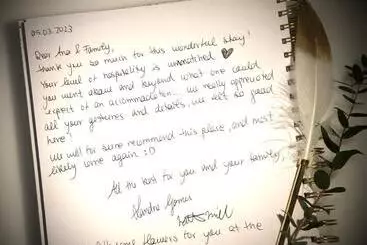 05.03.2023
Dear Ana & Family,
thank you so much for this wonderful stay!
Your level of hospitality is unmatched ♥
you went above and beyond what one could
expect of an accommodation... We really appreciated
all your gestures and details, we felt so good
here!
We will for sure recommend this place, and most
likely come again :D
All the best for you and your family,
flowers for you at the